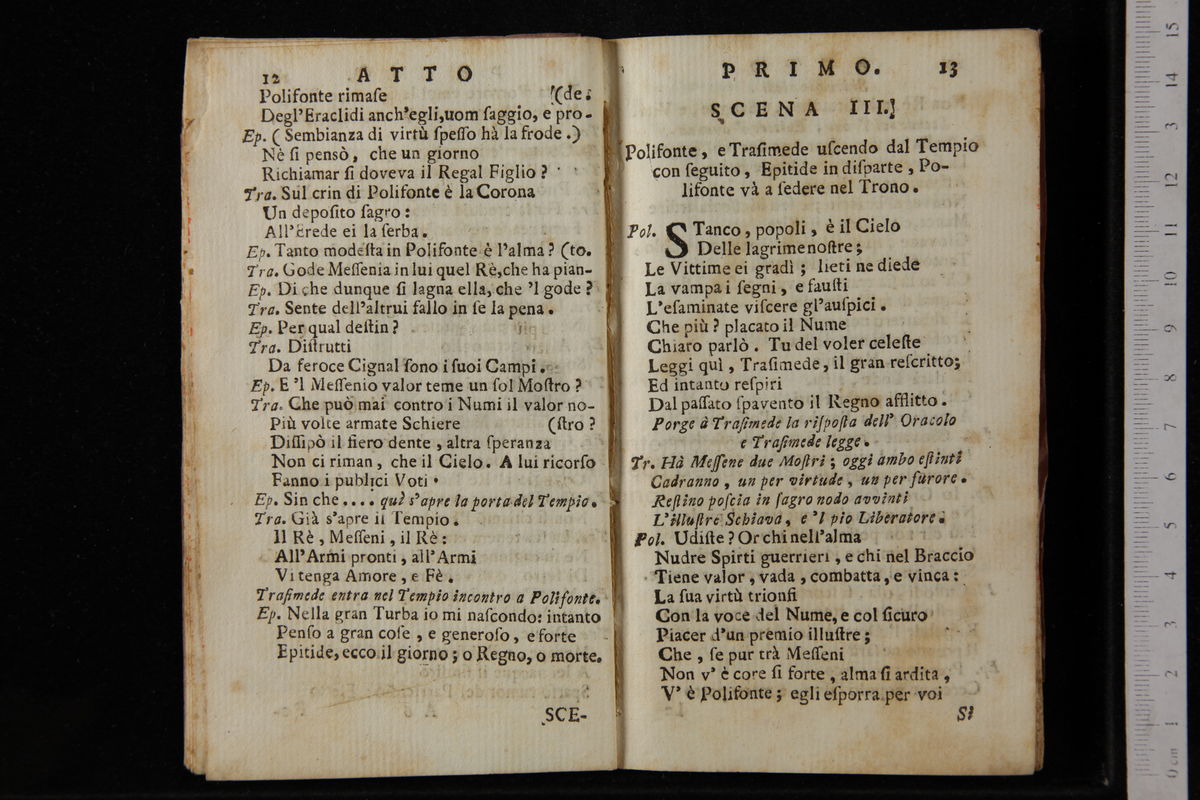 12 ATTO
Polifonte rimaſe (de.
Degl'Eraclidi anch'egli,uom ſaggio, e pro-
Ep. ( Sembianza di virtù ſpeſſo hà la frode .)
Nè ſi pensò, che un giorno
Richiamar ſi doveva il Regal Figlio ?
Tra. Sul crin di Polifonte è la Corona
Un depoſito ſagro :
All'Erede ei la ſerba .
Ep. Tanto modeſta in Polifonte è l'alma ? (to.
Tra. Gode Meſſenia in lui quel Rè,che ha pian-
Ep. Di che dunque ſi lagna ella, che 'l gode ?
Tra. Sente dell'altrui fallo in ſe la pena .
Ep. Per qual deſtin ?
Tra. Diſtrutti
Da feroce Cignal ſono i ſuoi Campi .
Ep. E 'l Meſſenio valor teme un ſol Moſtro ?
Tra. Che può mai contro i Numi il valor no-
Più volte armate Schiere (ſtro ?
Diſſipò il fiero dente , altra ſperanza
Non ci riman , che il Cielo . A lui ricorſo
Fanno i publici Voti .
Ep. Sin che .... quì s'apre la porta del Tempio .
Tra. Già s'apre il Tempio .
Il Rè , Meſſeni , il Rè :
All'Armi pronti , all'Armi
Vi tenga Amore , e Fè .
Traſimede entra nel Tempio incontro a Polifonte.
Ep. Nella gran Turba io mi naſcondo: intanto
Penſo a gran coſe , e generoſo , e forte
Epitide, ecco il giorno ; o Regno, o morte.
SCE-
PRIMO. 13
SCENA III.
Polifonte , e Traſimede uſcendo dal Tempio
con ſeguito , Epitide in diſparte , Po-
lifonte và a ſedere nel Trono .
Pol. STanco, popoli , è il Cielo
Delle lagrime noſtre ;
Le Vittime ei gradì ; lieti ne diede
La vampa i ſegni , e fauſti
L'eſaminate viſcere gl'auſpici .
Che più ? placato il Nume
Chiaro parlò . Tu del voler celeſte
Leggi quì , Traſimede, il gran reſcritto;
Ed intanto reſpiri
Dal paſſato ſpavento il Regno afflitto .
Porge à Traſimede la riſpoſta dell' Oracolo
e Traſimede legge .
Tr. Hà Meſſene due Moſtri ; oggi ambo eſtinti
Cadranno , un per virtude , un per furore .
Reſtino poſcia in ſagro nodo avvinti
L'illuſtre Schiava , e 'l pio Liberatore .
Pol. Udiſte ? Or chi nell'alma
Nudre Spirti guerrieri , e chi nel Braccio
Tiene valor , vada , combatta , e vinca :
La ſua virtù trionfi
Con la voce del Nume, e col ſicuro
Piacer d'un premio illuſtre ;
Che , ſe pur trà Meſſeni
Non v' è core ſi forte , alma ſi ardita ,
V' è Polifonte ; egli eſporra per voi
Si
0 cm 1 2 3 4 5 6 7 8 9 10 11 12 13 14 15